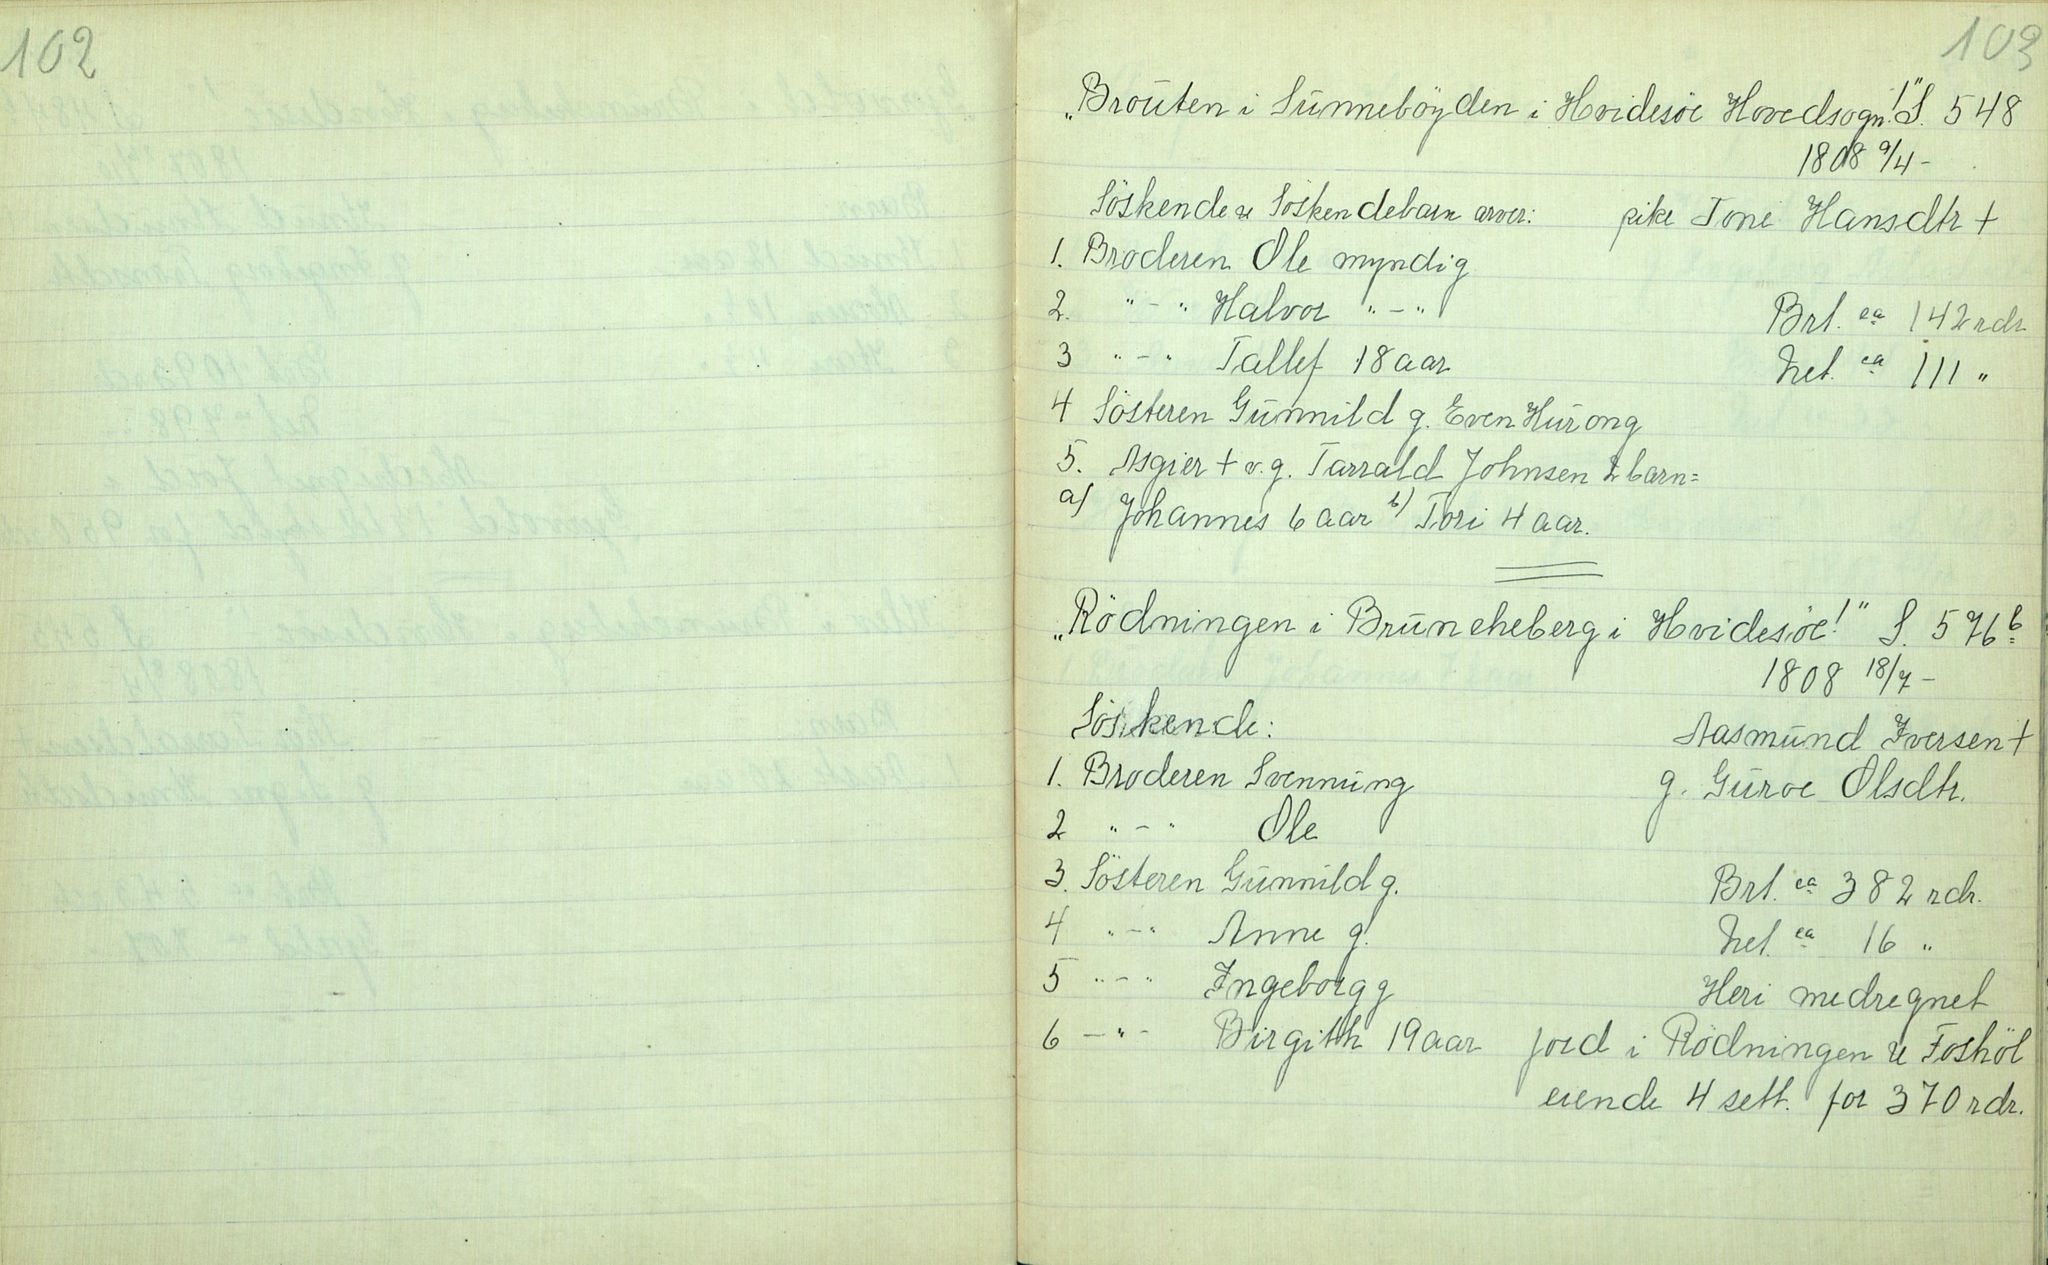 102
103
„Broüten i Sünnebøyden i Hvidesøe Hovedsogn!" S. 548
1808 9/4 -
Söskende & Söskendebarn arver: pike Toni Hansdtr +
1. Broderen Ole myndig
2. " - " Halvor " - " Brt. ca 142 rdr
3 " - " Tallef 18 aar Net. ca 111 "
4 Sösteren Günnild g. Even Hürong
5. Asgier + v. g. Tarrald Johnsen 2 barn =
a) Johannes 6 aar b) Tori 4 aar.
„Rödningen i Brüneheberg i Hvidesøe!" S. 576 b
1808 18/7 -
Söskende: Aasmünd Iversen +
1. Broderen Svennüng g. Güroe Olsdtr.
2 " - " Ole
3. Sösteren Günnild g. Brt. ca 382 rdr.
4 " - " Anne g. Net. ca 16 "
5 " - " Ingeborg g Heri medregnet
6 - " - Birgith 19 aar jord i Rödningen & Foshöl
eiende 4 sett. for 370 rdr.